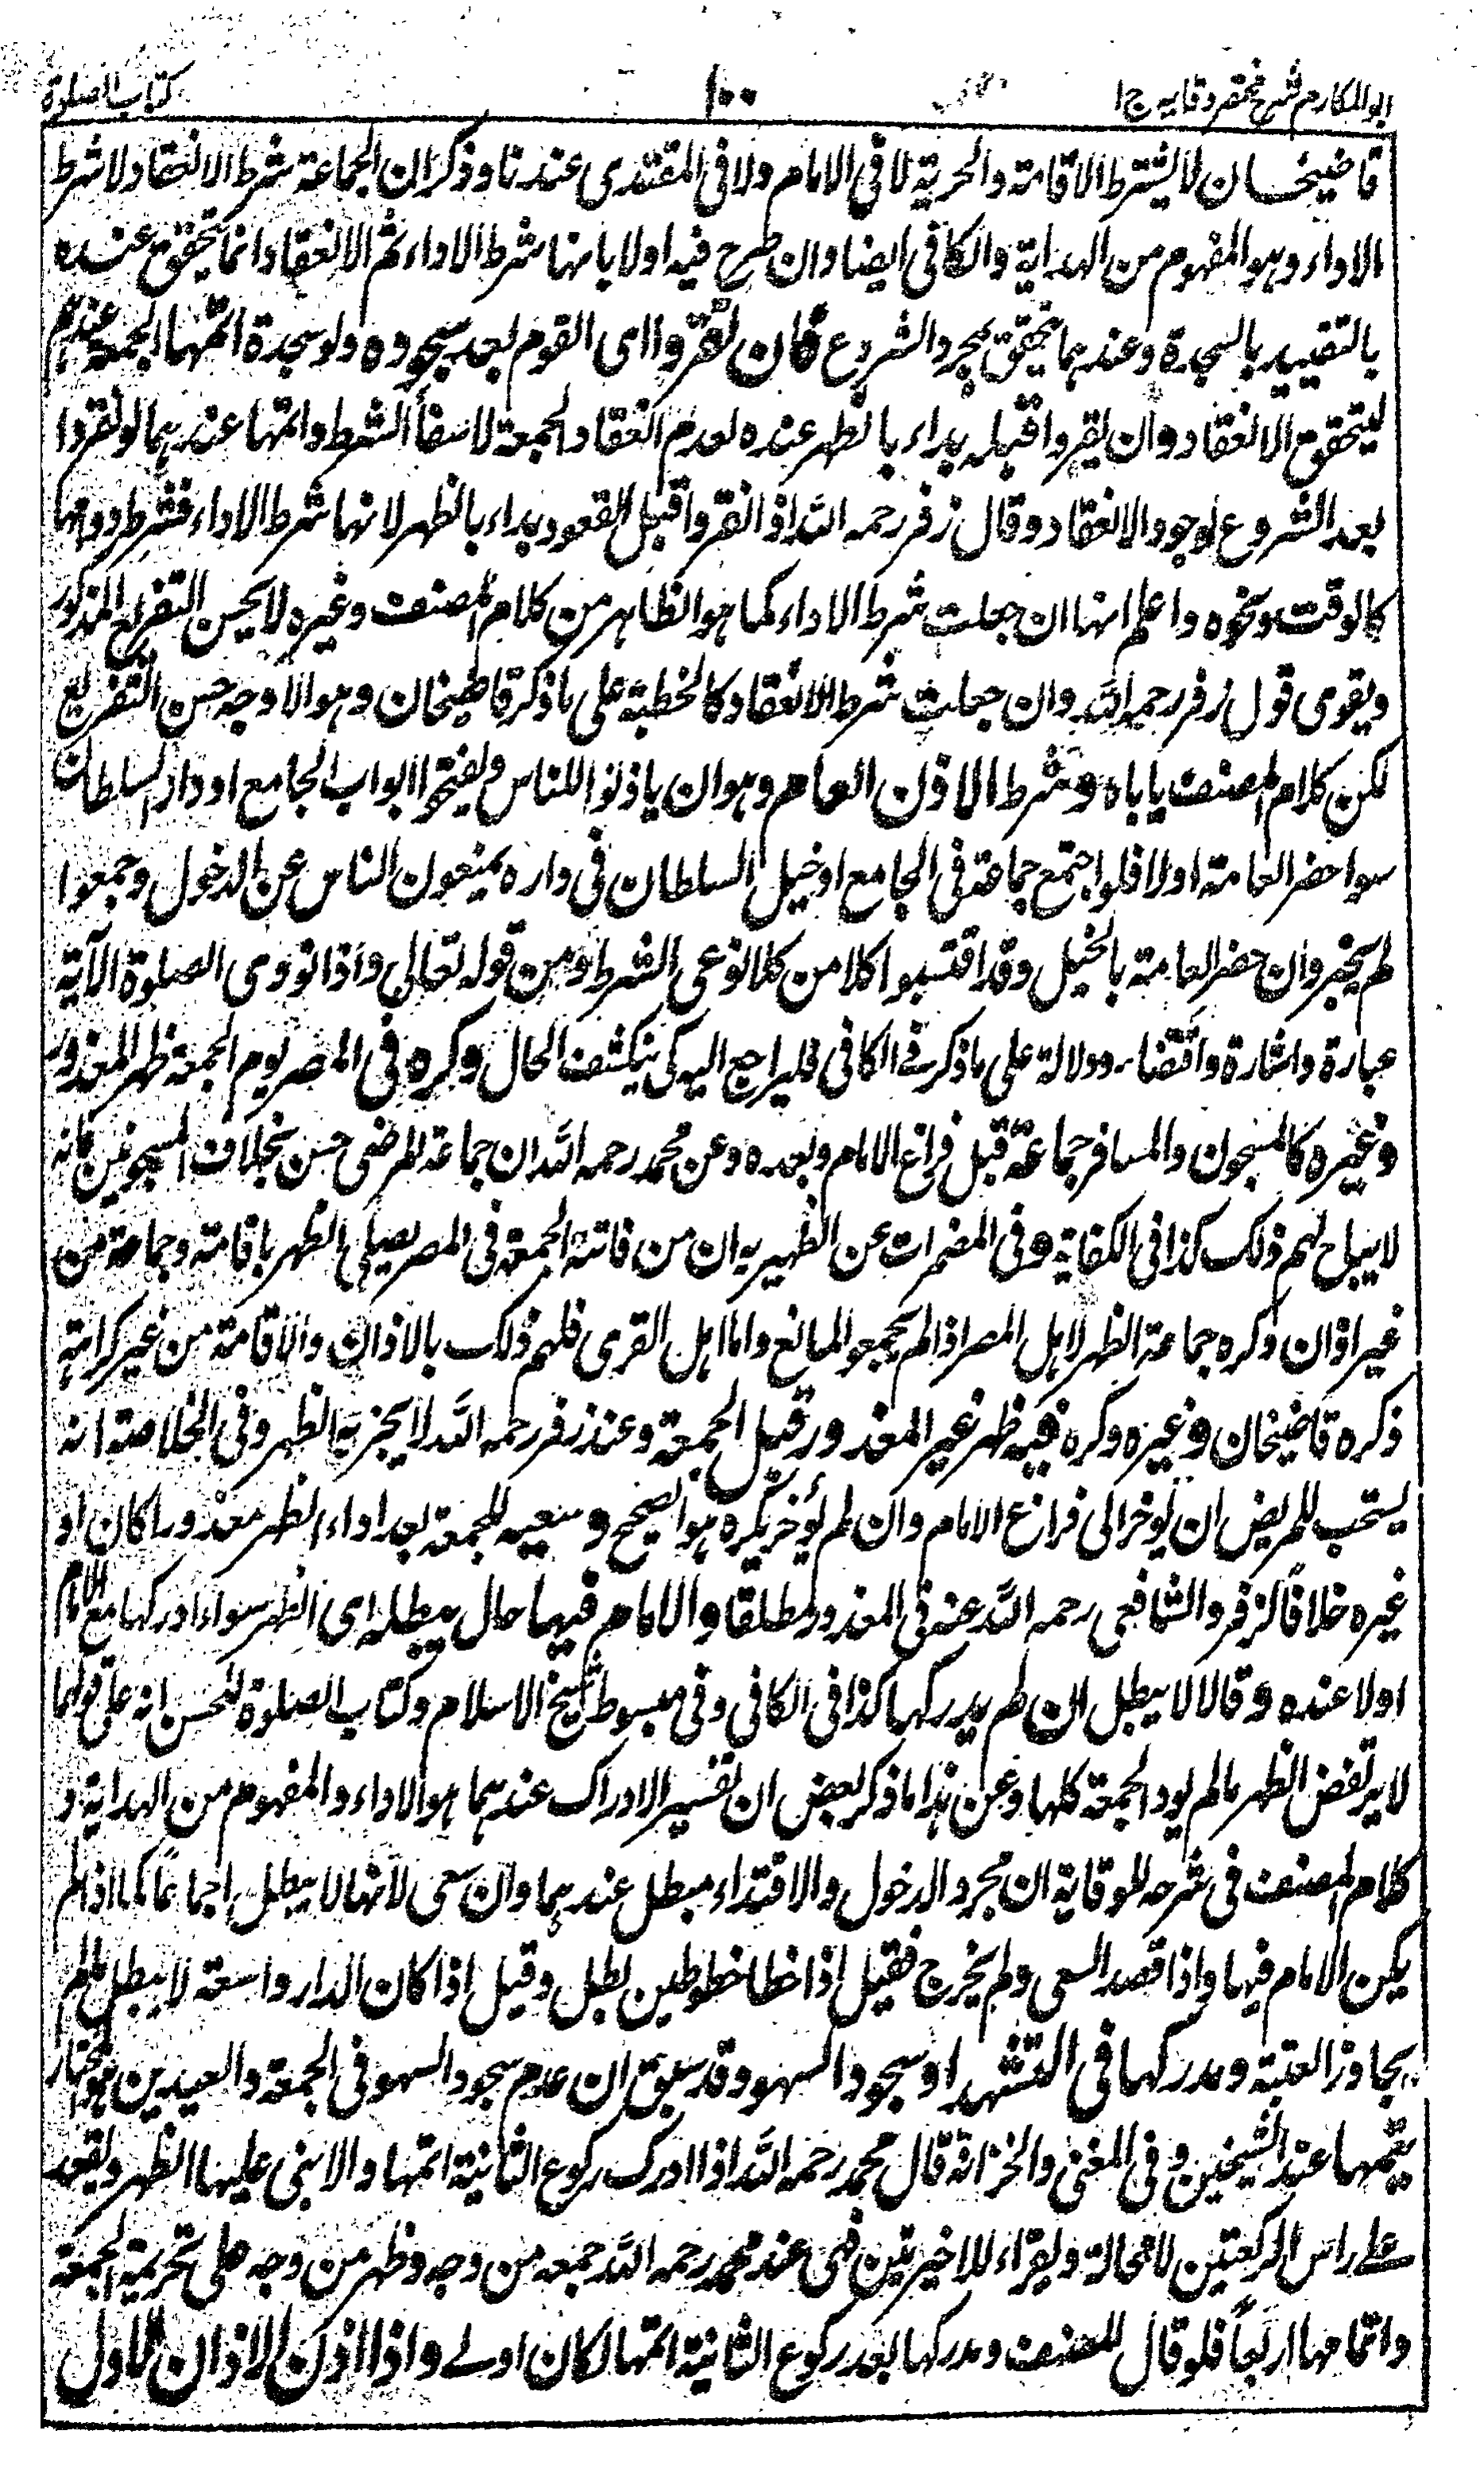 ابو المكارم شرح مختصر وقايه ج ا
١٠٠
كتاب الصلوة
قاضيخان لا يشترط الاقامة والحرية لا في الامام ولا في المقتدى عندنا وذكر ان الجماعة شرط الانعقاد لا شرط
الاداء وهو المفهوم من الهداية والكافي ايضا وان صرح فيه اولا بانها شرط الاداء ثم الانعقاد انما يتحقق عنده
بالتقييد بالسجدة وعندهما يتحقق بمجرد الشروع فان نفروا اى القوم بعد سجوده ولو سجدة اتمها الجمعة عندهم
ليتحقق الانعقاد وان نفروا قبله بداء بالظهر عنده لعدم انعقاد الجمعة لانتفاء الشرط واتمها عندهما لو نفروا
بعد الشروع لوجود الانعقاد وقال زفر رحمه الله اذا نفروا قبل القعود بداء بالظهر لانها شرط الاداء فشرط دوامها
كالوقت ونحوه واعلم انها ان جعلت شرط الاداء كما هو الظاهر من كلام المصنف وغيره لا يحسن التفريع المذكور
ويقوى قول زفر رحمه الله وان جعلت شرط الانعقاد كالخطبة على ما ذكر قاضيخان وهو الاوجه حسن التفريع
لكن كلام المصنف ياباه وشرط الاذن العام وهو ان ياذنوا للناس ويفتحوا ابواب الجامع او دار السلطان
سواء حضر العامة اولا فلو اجتمع جماعة في الجامع او خيل السلطان في داره يمنعون الناس عن الدخول وجمعوا
لم يجز وان حضر العامة بالخيل وقد اقتبسوا كلا من كلا نوعى الشرط من قوله تعالى واذا نودى الصلوة الآية
عبارة واشارة واقتضاء ودلالة على ما ذكر في الكافي فليراجع اليه كى ينكشف الحال وكره في المصر يوم الجمعة ظهر المعذور
وغيره كالمسجون والمسافر جماعة قبل فراغ الامام وبعده وعن محمد رحمه الله ان جماعة المرضى حسن بخلاف المسجونين فانه
لا يباح لهم ذلك كذا في الكفاية وفي المضمرات عن الظهيريه ان من فاتته الجمعة في المصر يصلى الظهر باقامة وجماعة من
غير اذان وكره جماعة الظهر لاهل المصر اذا لم يجمعوا لمانع واما اهل القرى فلهم ذلك بالاذان والاقامة من غير كراهة
ذكره قاضيخان وغيره وكره فيه ظهر غير المعذور قبل الجمعة وعند زفر رحمه الله لا يجزيه الظهر وفي الخلاصة انه
يستحب للمريض ان يؤخر الى فراغ الامام وان لم يؤخر يكره هو الصحيح وسعيه للجمعة بعد اداء الظهر معذورا كان او
غيره خلافا لزفر والشافعى رحمه الله عنه في المعذور مطلقا والامام فيها حال يبطله اى الظهر سواء ادركها مع الامام
اولا عنده وقالا لا يبطل ان لم يدركها كذا في الكافي وفي مبسوط شيخ الاسلام وكتاب الصلوة للحسن انه على قولهما
لا يرتفض الظهر ما لم يود الجمعة كلها وعن هذا ما ذكر بعض ان تفسير الادراك عندهما هو الاداء والمفهوم من الهداية و
كلام المصنف في شرحه للوقاية ان مجرد الدخول والاقتداء مبطل عندهما وان سعى لا لها لا يبطل اجماعا كما اذا لم
يكن الامام فيها واذا قصد السعى ولم يخرج فقيل اذا خطا خطوطين بطل وقيل اذا كان الدار واسعة لا يبطل ما لم
يجاوز العتبة ومدركها في التشهد او سجود السهو وقد سبق ان عدم سجود السهو في الجمعة والعيدين هو المختار
يتمها عند الشيخين وفي المغنى والخزانة قال محمد رحمه الله اذا ادرك ركوع الثانية اتمها والا بنى عليها الظهر ويقعد
على راس الركعتين لا محالة ويقراء للاخيرتين فهى عند محمد رحمه الله جمعه من وجه وظهر من وجه على تحريمة الجمعة
واتمامها اربعا فلو قال المصنف ومدركها بعد ركوع الثانية اتمها لكان اولى واذا اذن الاذان الاول